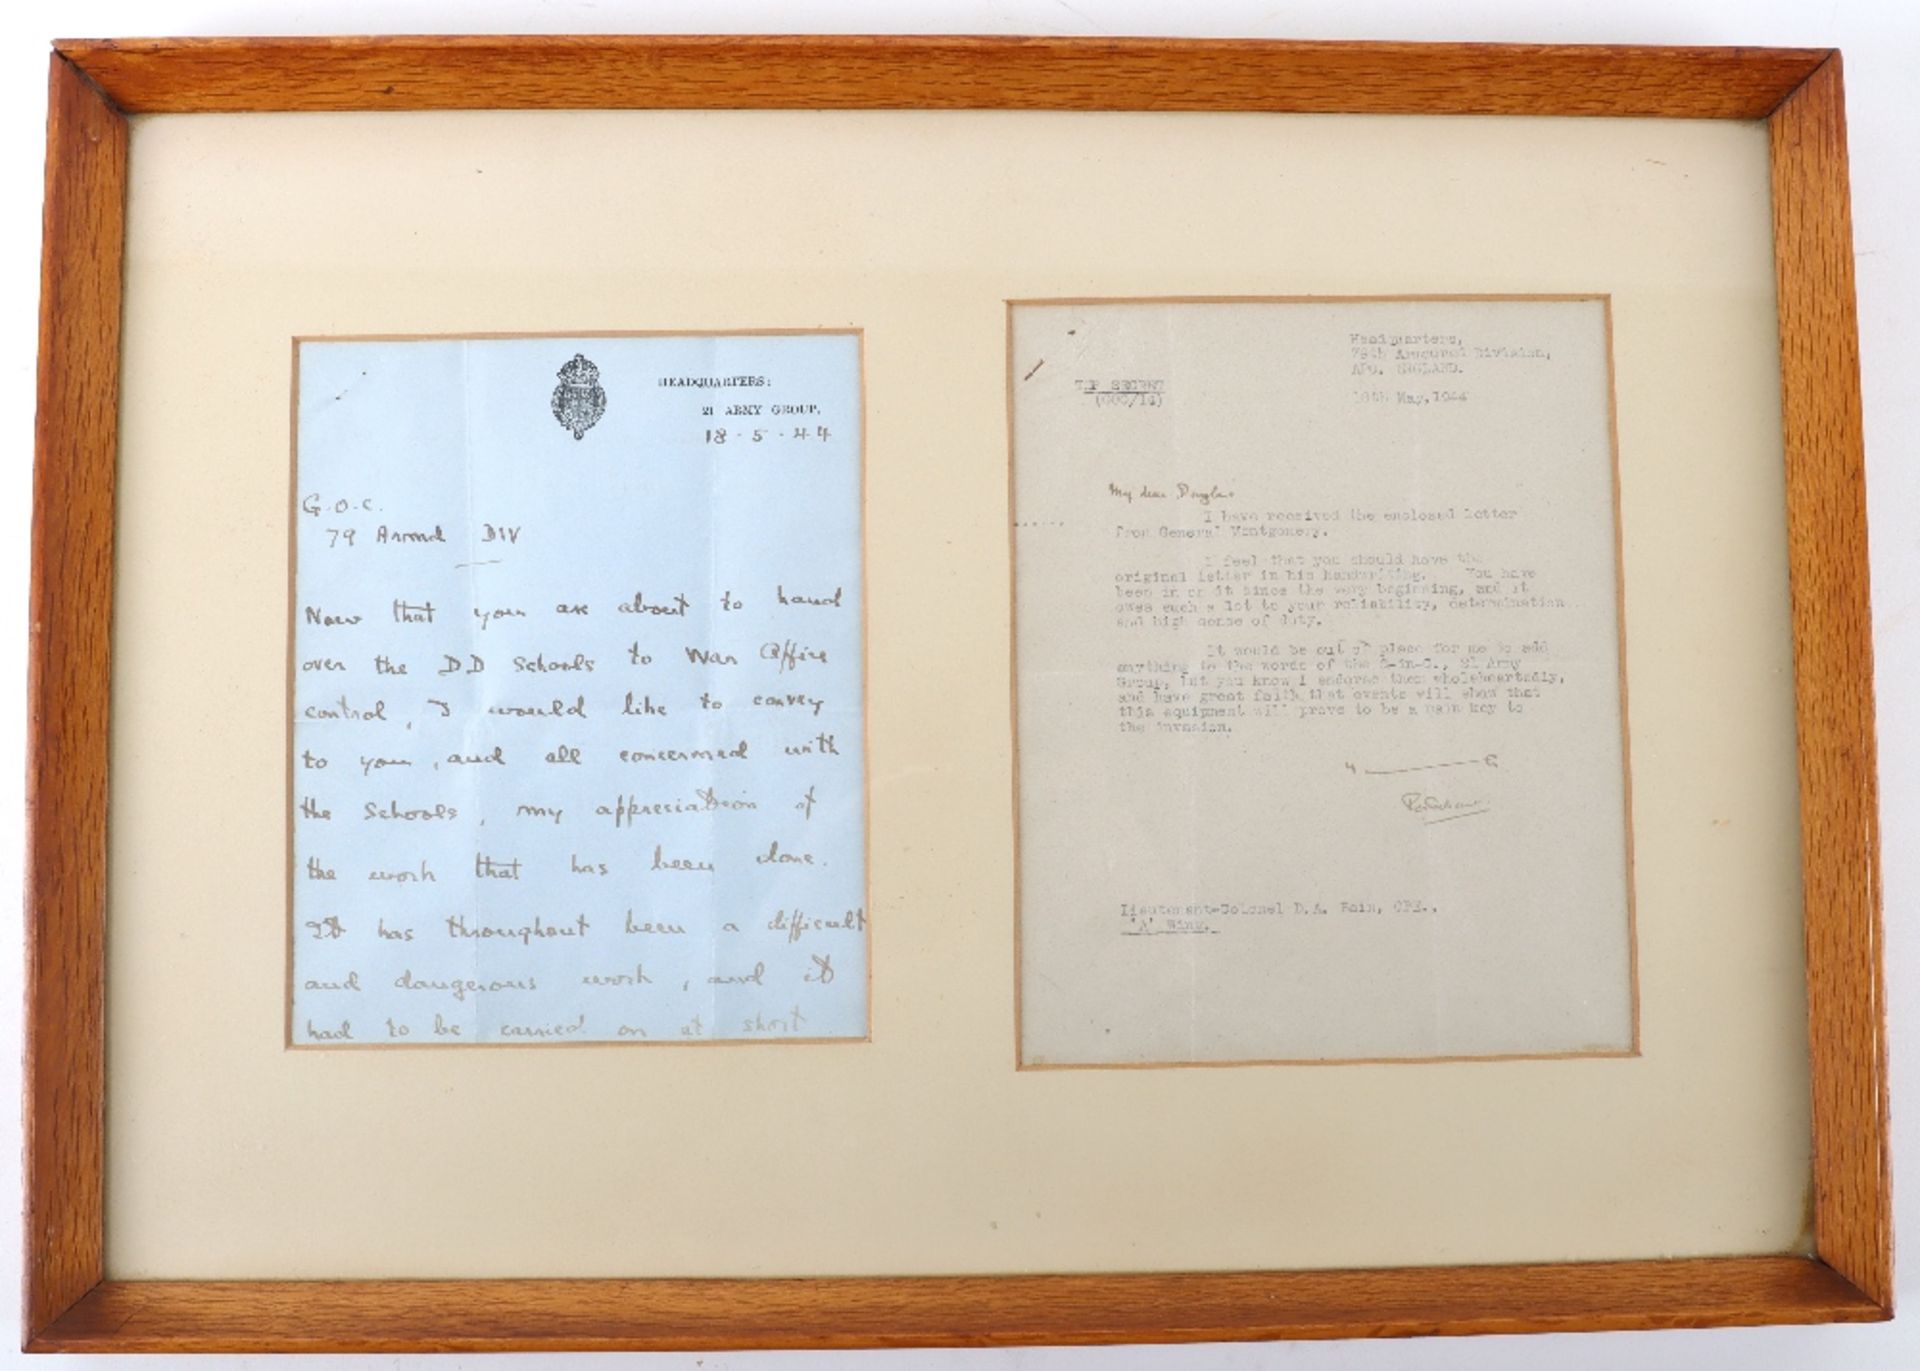 HEADQUARTERS:
21 ARMY GROUP.
18-5-44
G.O.C.
79 Armd DIV
Now that you are about to hand
over the DD Schools to War Office
control, I would like to convey
to you, and all concerned with
the Schools, my appreciation of
the work that has been done.
It has throughout been a difficult
and dangerous work, and it
had to be carried on at short
Headquarters,
79th Armoured Division,
APO. ENGLAND.
TOP SECRET
18th May, 1944
My dear Douglas
I have received the enclosed letter
from General Montgomery.
I feel that you should have the
original letter in his handwriting. You have
been in on it since the very beginning, and it
owes such a lot to your reliability, determination
and high sense of duty.
It would be out of place for me to add
anything to the words of the C-in-C., 21 Army
Group, but you know I endorse them wholeheartedly,
and have great faith that events will show that
this equipment will prove to be a main key to
the invasion.
Lieutenant-Colonel D.A.
'A' Wing.